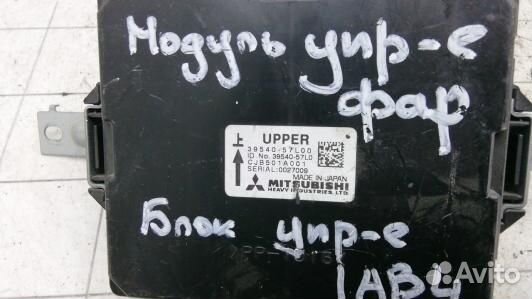 Модуль упр-е
фар
上 UPPER
39540-57L00
ID No. 39540-57L0
CJB501A001
SERIAL:0027009
MADE IN JAPAN
MITSUBISHI
HEAVY INDUSTRIES, LTD.
Блок упр-е
1AB4
Avito